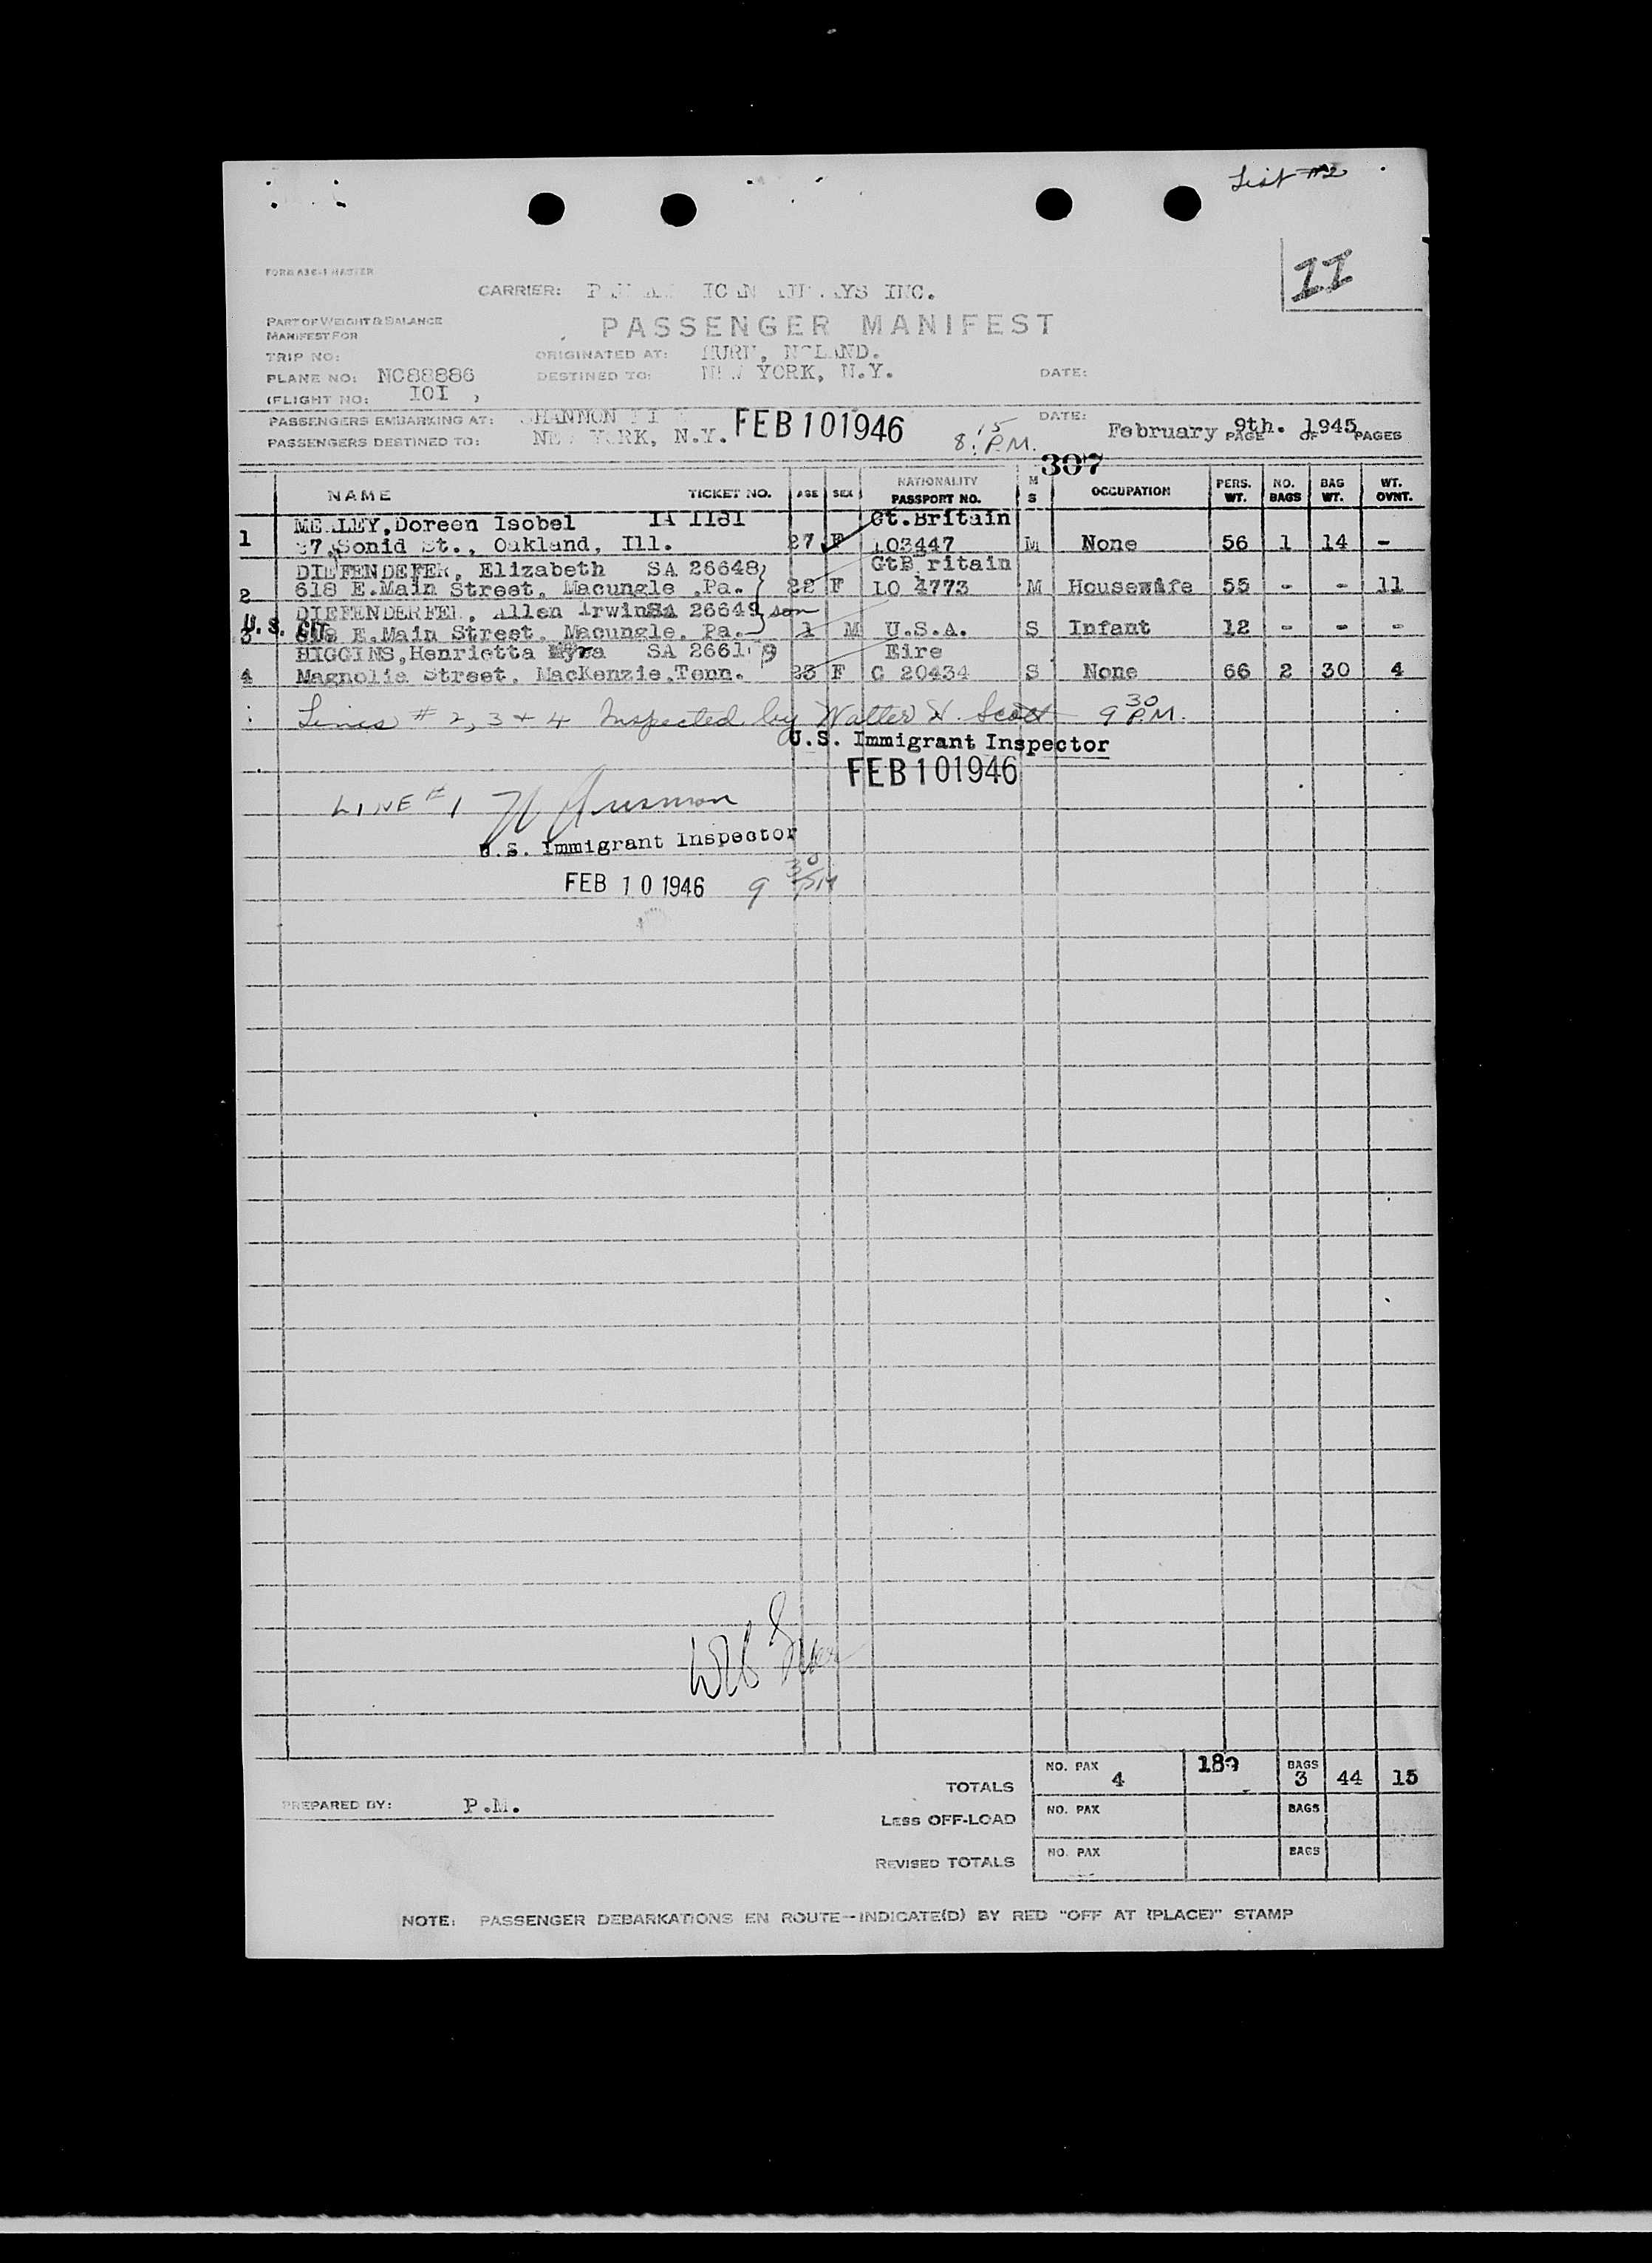 List #2
II
FORM A36-1 MASTER
CARRIER: INC.
PART OF WEIGHT & BALANCE
MANIFEST FOR
PASSENGER MANIFEST
TRIP NO:
ORIGINATED AT: HURN,
PLANE NO: NC88886
DESTINED TO: NEW YORK, N.Y.
DATE:
(FLIGHT NO: IOI )
PASSENGERS EMBARKING AT: SHANNON
FEB 10 1946
8:15 P.M.
DATE: February 9th. 1945
PASSENGERS DESTINED TO: NEW YORK, N.Y.
PAGE OF PAGES
307
NAME TICKET NO. AGE SEX NATIONALITY PASSPORT NO. M S OCCUPATION PERS. WT. NO. BAGS BAG WT. WT. OVNT.
Doreen Isobel IA 1181 Gt.Britain
1 St., Oakland, Ill. 27 F 103447 M None 56 1 14 -
DIEFENDEFER, Elizabeth SA 26648 GtB ritain
2 618 E.Main Street, Macungle ,Pa. 22 F LO 4773 M Housewife 55 - - 11
DIEFENDERFER, Allen Irwin SA 26649 son
U.S. Cit.
3 618 E.Main Street, Macungle, Pa. 1 M U.S.A. S Infant 12 - - -
HIGGINS,Henrietta Myra SA 2661 9 Eire
4 Magnolia Street, MacKenzie,Tenn. 23 F C 20434 S None 66 2 30 4
Lines # 2, 3 + 4 Inspected by Walter N. Scott 9 30 P.M.
U.S. Immigrant Inspector
FEB 10 1946
LINE #1
U.S. Immigrant Inspector
FEB 10 1946 9 30 PM
TOTALS NO. PAX 4 189 BAGS 3 44 15
PREPARED BY: P.M.
LESS OFF-LOAD NO. PAX BAGS
REVISED TOTALS NO. PAX BAGS
NOTE: PASSENGER DEBARKATIONS EN ROUTE--INDICATE(D) BY RED "OFF AT (PLACE)" STAMP